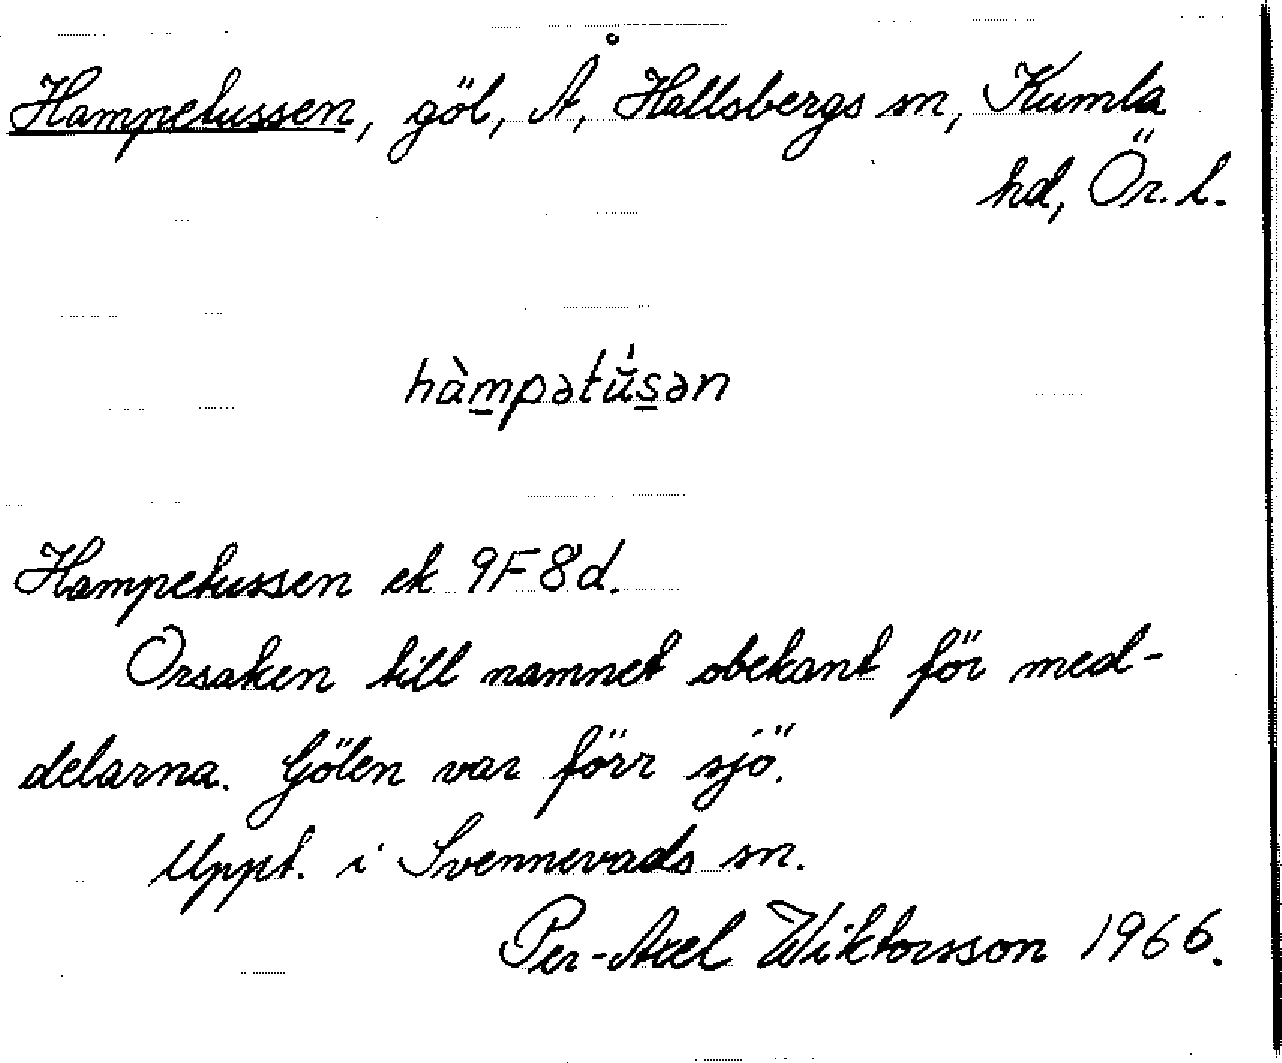 Hampetussen, göl, Å, Hallsbergs sn, Kumla
hd, Ör. l.
hàmpətú̆sən
Hampetussen ek 9F8d.
Orsaken till namnet obekant för med-
delarna. Gölen var förr sjö.
Uppt. i Svennevads sn.
Per-Axel Wiktorsson 1966.